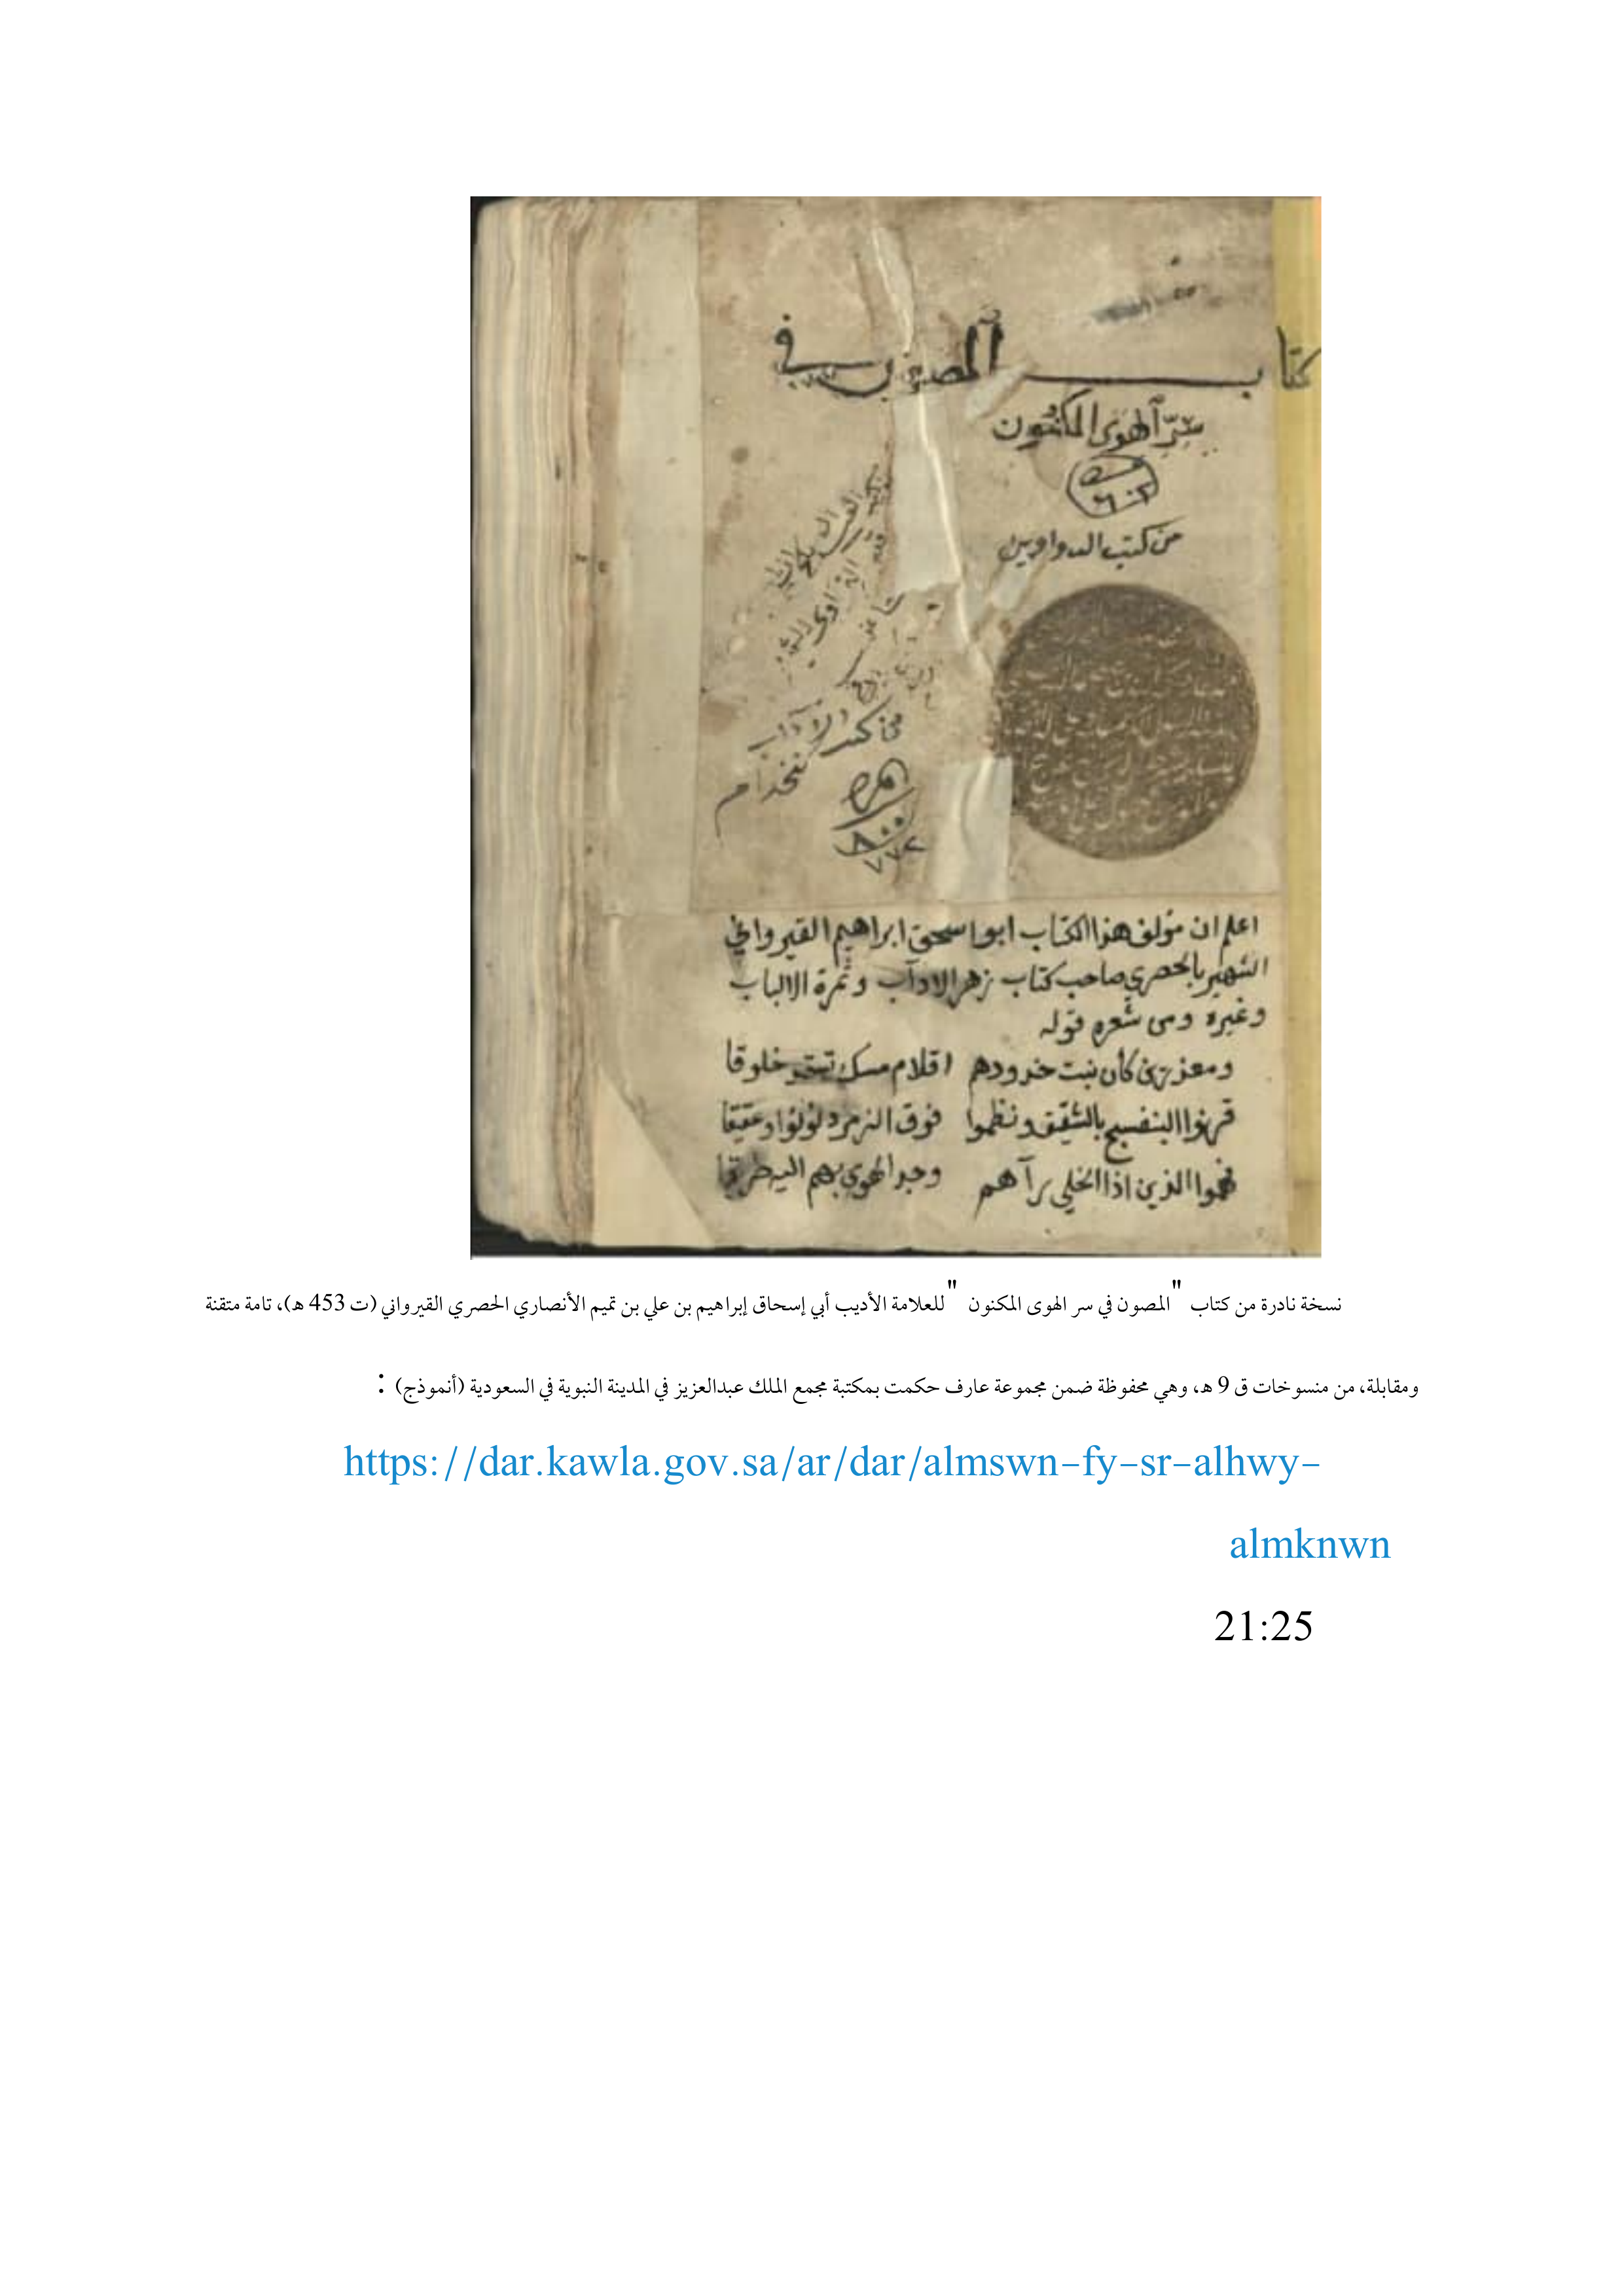 كتاب المصون في
سرّ الهوى المكنون
من كتب الدواوين
من كتب الآداب
٨٠٠
٧٧٢
اعلم ان مؤلف هذا الكتاب ابو اسحق ابراهيم القيرواني
الشهير بالحصري صاحب كتاب زهر الاداب وثمرة الالباب
وغيره ومن شعره قوله
ومعذرين كأن نبت خدودهم اقلام مسك تستمد خلوقا
قرنوا البنفسج بالشقيق ونظموا فوق الزمرد لؤلؤا وعقيقا
فهموا الذين اذا الخلي رآهم وجد الهوى بهم اليه طريقا
نسخة نادرة من كتاب "المصون في سر الهوى المكنون" للعلامة الأديب أبي إسحاق إبراهيم بن علي بن تميم الأنصاري الحصري القيرواني (ت 453 هـ)، تامة متقنة
ومقابلة، من منسوخات ق 9 هـ، وهي محفوظة ضمن مجموعة عارف حكمت بمكتبة مجمع الملك عبدالعزيز في المدينة النبوية في السعودية (أنموذج) :
https://dar.kawla.gov.sa/ar/dar/almswn-fy-sr-alhwy-
almknwn
21:25